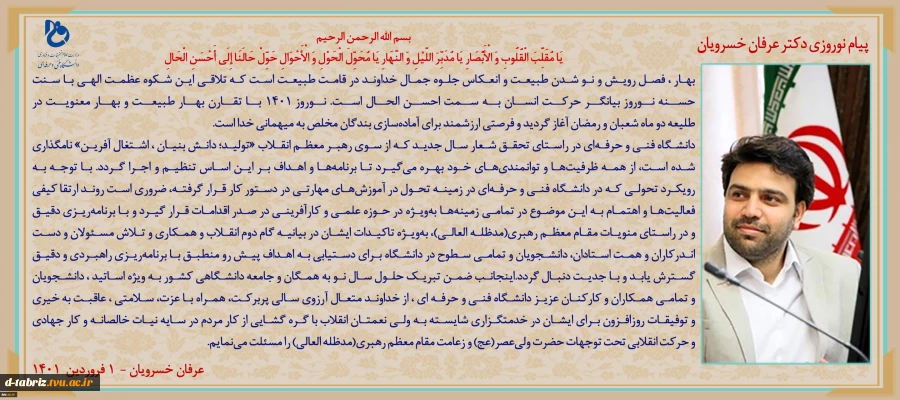 پیام نوروزی دکتر عرفان خسرویان
بسم الله الرحمن الرحیم
یَا مُقَلِّبَ الْقُلُوبِ وَ الْأَبْصَارِ یَا مُدَبِّرَ اللَّیْلِ وَ النَّهَارِ یَا مُحَوِّلَ الْحَوْلِ وَ الْأَحْوَالِ حَوِّلْ حَالَنَا إِلَى أَحْسَنِ الْحَالِ
بهار، فصل رویش و نو شدن طبیعت و انعکاس جلوه جمال خداوند در قامت طبیعت است که تلاقی این شکوه عظمت الهی با سنت
حسنه نوروز بیانگر حرکت انسان به سمت احسن الحال است. نوروز ۱۴۰۱ با تقارن بهار طبیعت و بهار معنویت در
طلیعه دو ماه شعبان و رمضان آغاز گردید و فرصتی ارزشمند برای آماده‌سازی بندگان مخلص به میهمانی خدا است.
دانشگاه فنی و حرفه‌ای در راستای تحقق شعار سال جدید که از سوی رهبر معظم انقلاب «تولید؛ دانش بنیان ، اشتغال آفرین» نامگذاری
شده است، از همه ظرفیت‌ها و توانمندی‌های خود بهره می‌گیرد تا برنامه‌ها و اهداف بر این اساس تنظیم و اجرا گردد. با توجه به
رویکرد تحولی که در دانشگاه فنی و حرفه‌ای در زمینه تحول در آموزش‌های مهارتی در دستور کار قرار گرفته، ضروری است روند ارتقا کیفی
فعالیت‌ها و اهتمام به این موضوع در تمامی زمینه‌ها به‌ویژه در حوزه علمی و کارآفرینی در صدر اقدامات قرار گیرد و با برنامه‌ریزی دقیق
و در راستای منویات مقام معظم رهبری(مدظله العالی)، به‌ویژه تاکیدات ایشان در بیانیه گام دوم انقلاب و همکاری و تلاش مسئولان و دست
اندرکاران و همت استادان، دانشجویان و تمامی سطوح در دانشگاه برای دستیابی به اهداف پیش رو منطبق با برنامه‌ریزی راهبردی و دقیق
گسترش یابد و با جدیت دنبال گردد.اینجانب ضمن تبریک حلول سال نو به همگان و جامعه دانشگاهی کشور به ویژه اساتید ، دانشجویان
و تمامی همکاران و کارکنان عزیز دانشگاه فنی و حرفه ای ، از خداوند متعال آرزوی سالی پربرکت، همراه با عزت، سلامتی ، عاقبت به خیری
و توفیقات روزافزون برای ایشان در خدمتگزاری شایسته به ولی نعمتان انقلاب با گره گشایی از کار مردم در سایه نیات خالصانه و کار جهادی
و حرکت انقلابی تحت توجهات حضرت ولی‌عصر(عج) و زعامت مقام معظم رهبری(مدظله العالی) را مسئلت می‌نمایم.
عرفان خسرویان - ۱ فروردین ۱۴۰۱
d-tabriz.tvu.ac.ir